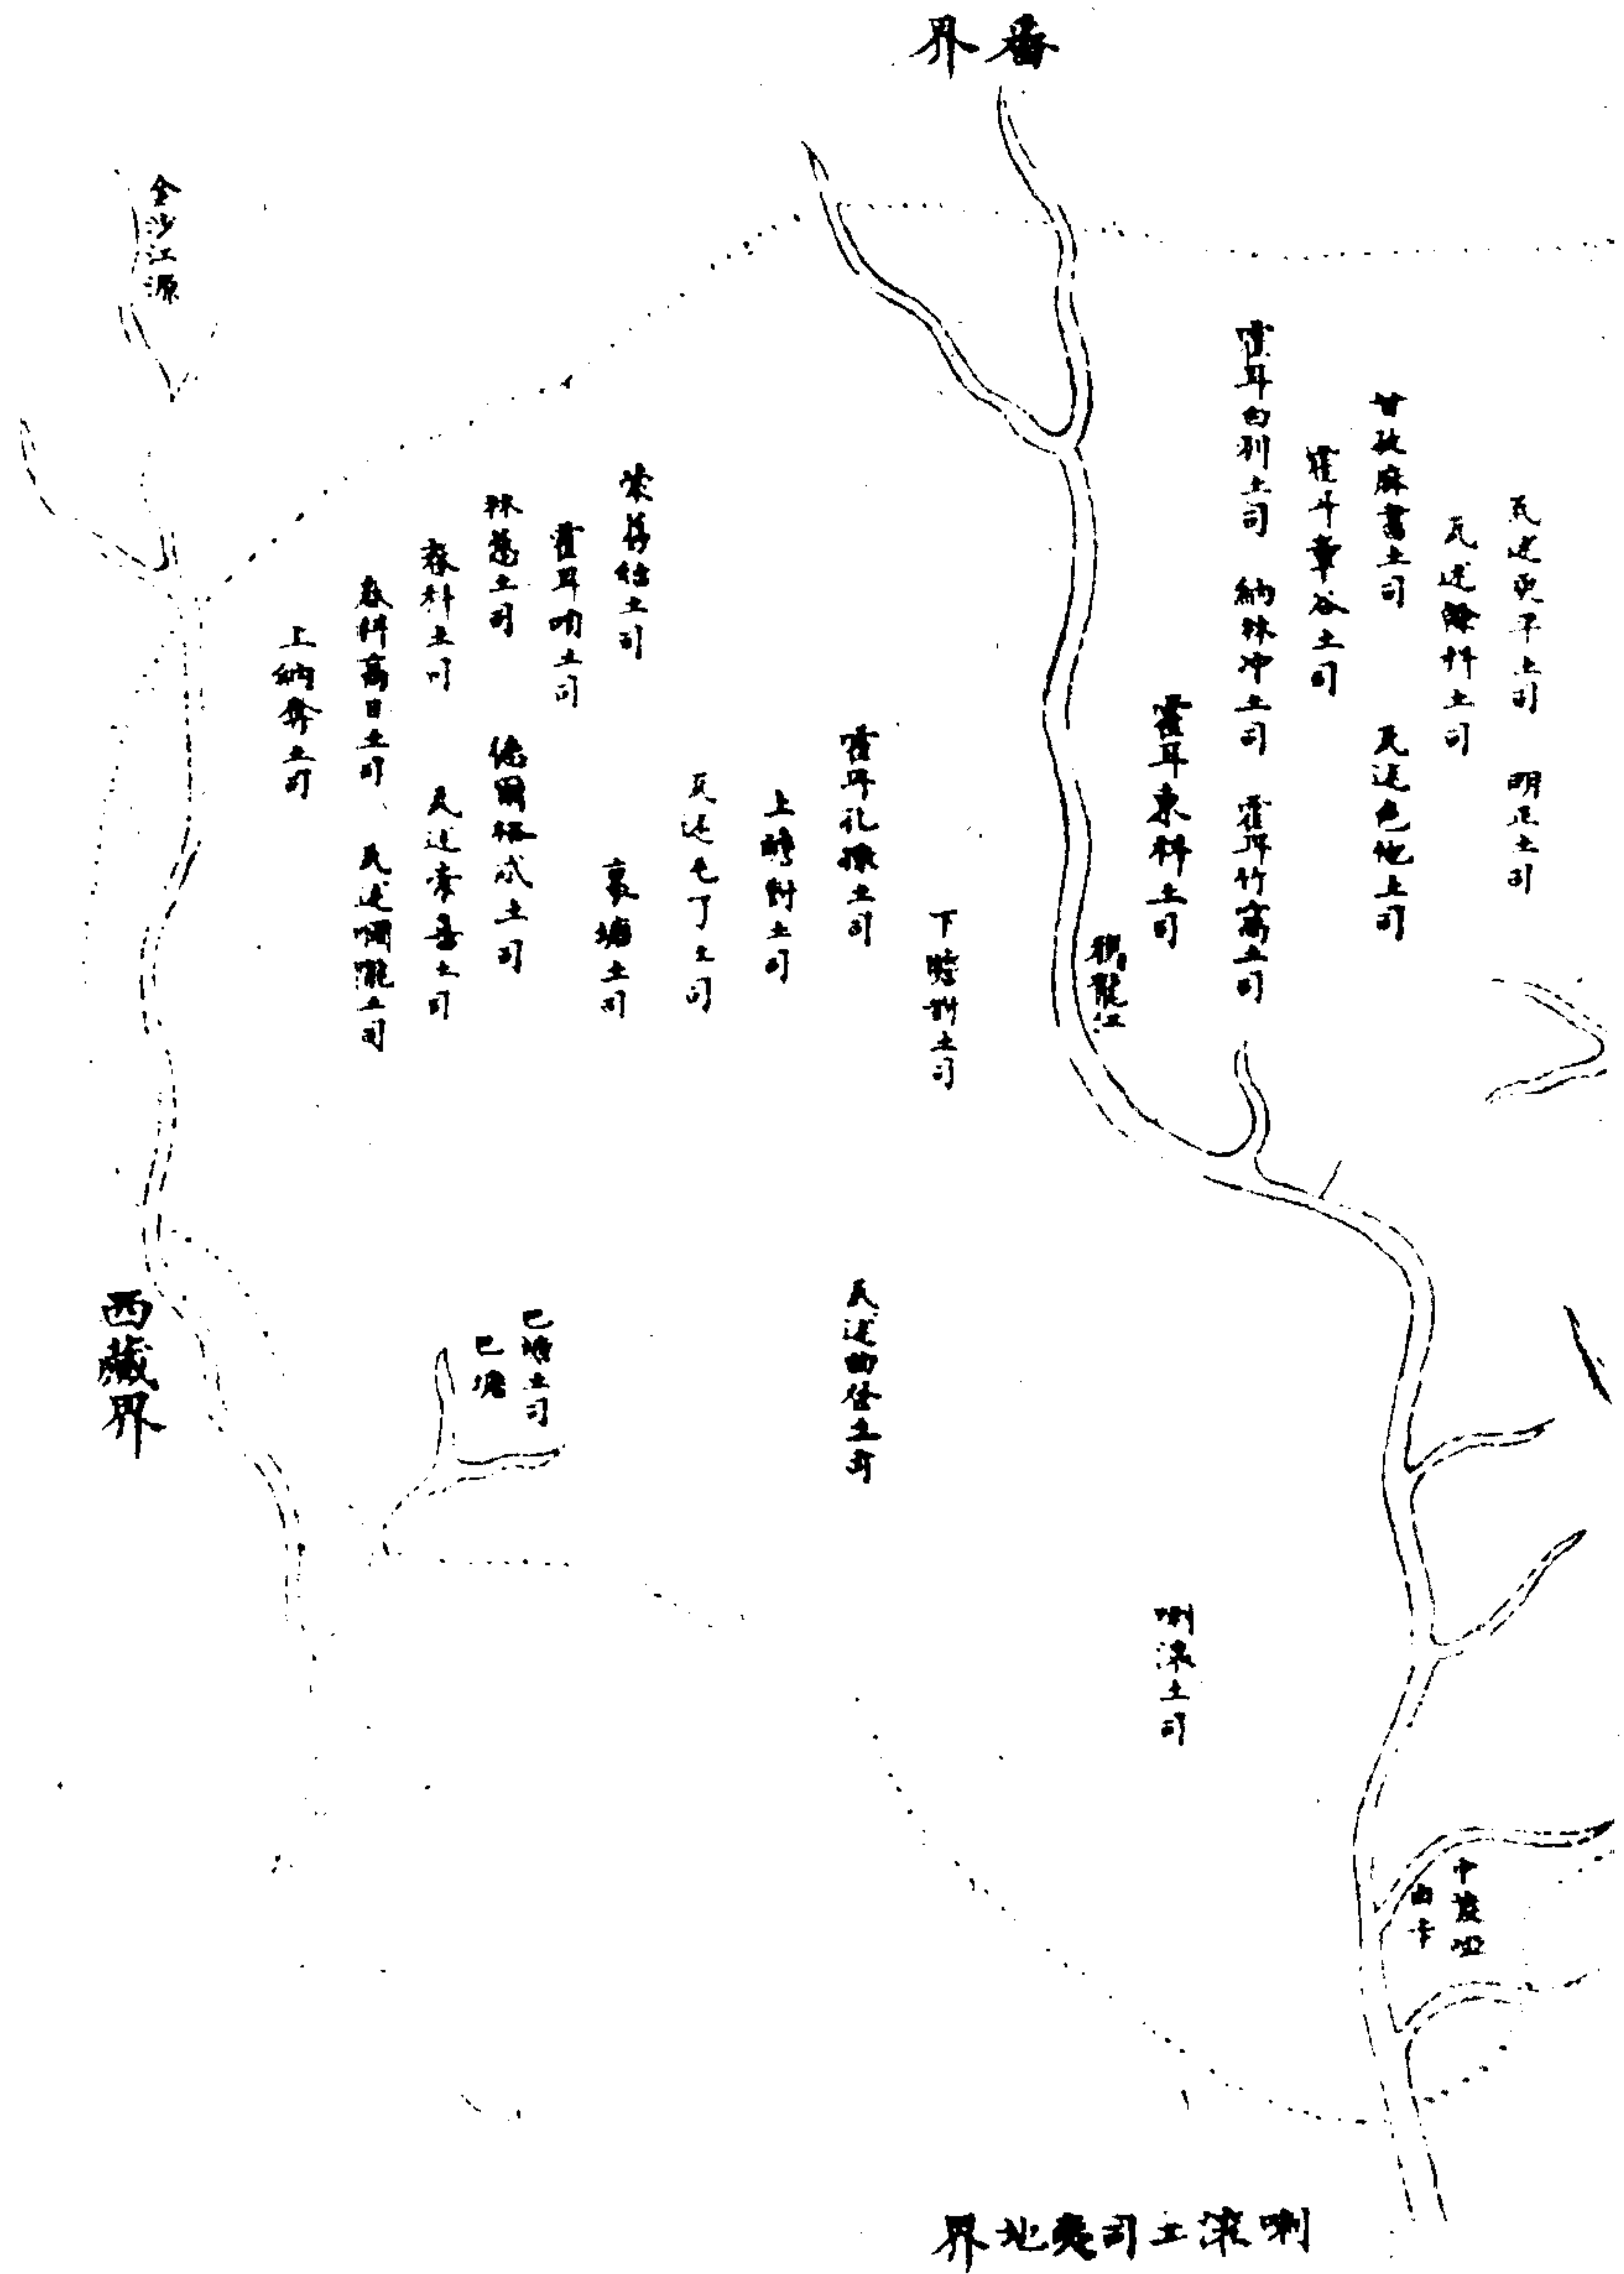 番界
瓦述更平土司
明正土司
瓦述餘科土司
甘孜麻書土司
瓦述色他土司
霍耳章谷土司
霍耳白利土司
納林冲土司
霍耳竹窩土司
霍耳東科土司
鴉龍江
下瞻對土司
霍耳孔撒土司
上瞻對土司
瓦述毛丫土司
蒙葛結土司
裏塘土司
霍耳咱土司
林葱土司
德爾格忒土司
春科土司
瓦述崇喜土司
春科高日土司
瓦述啯隴土司
上納奪土司
金沙江源
西藏界
巴塘土司
巴塘
瓦述曲登土司
喇滾土司
中渡汛
由卡
喇滾土司夷地界